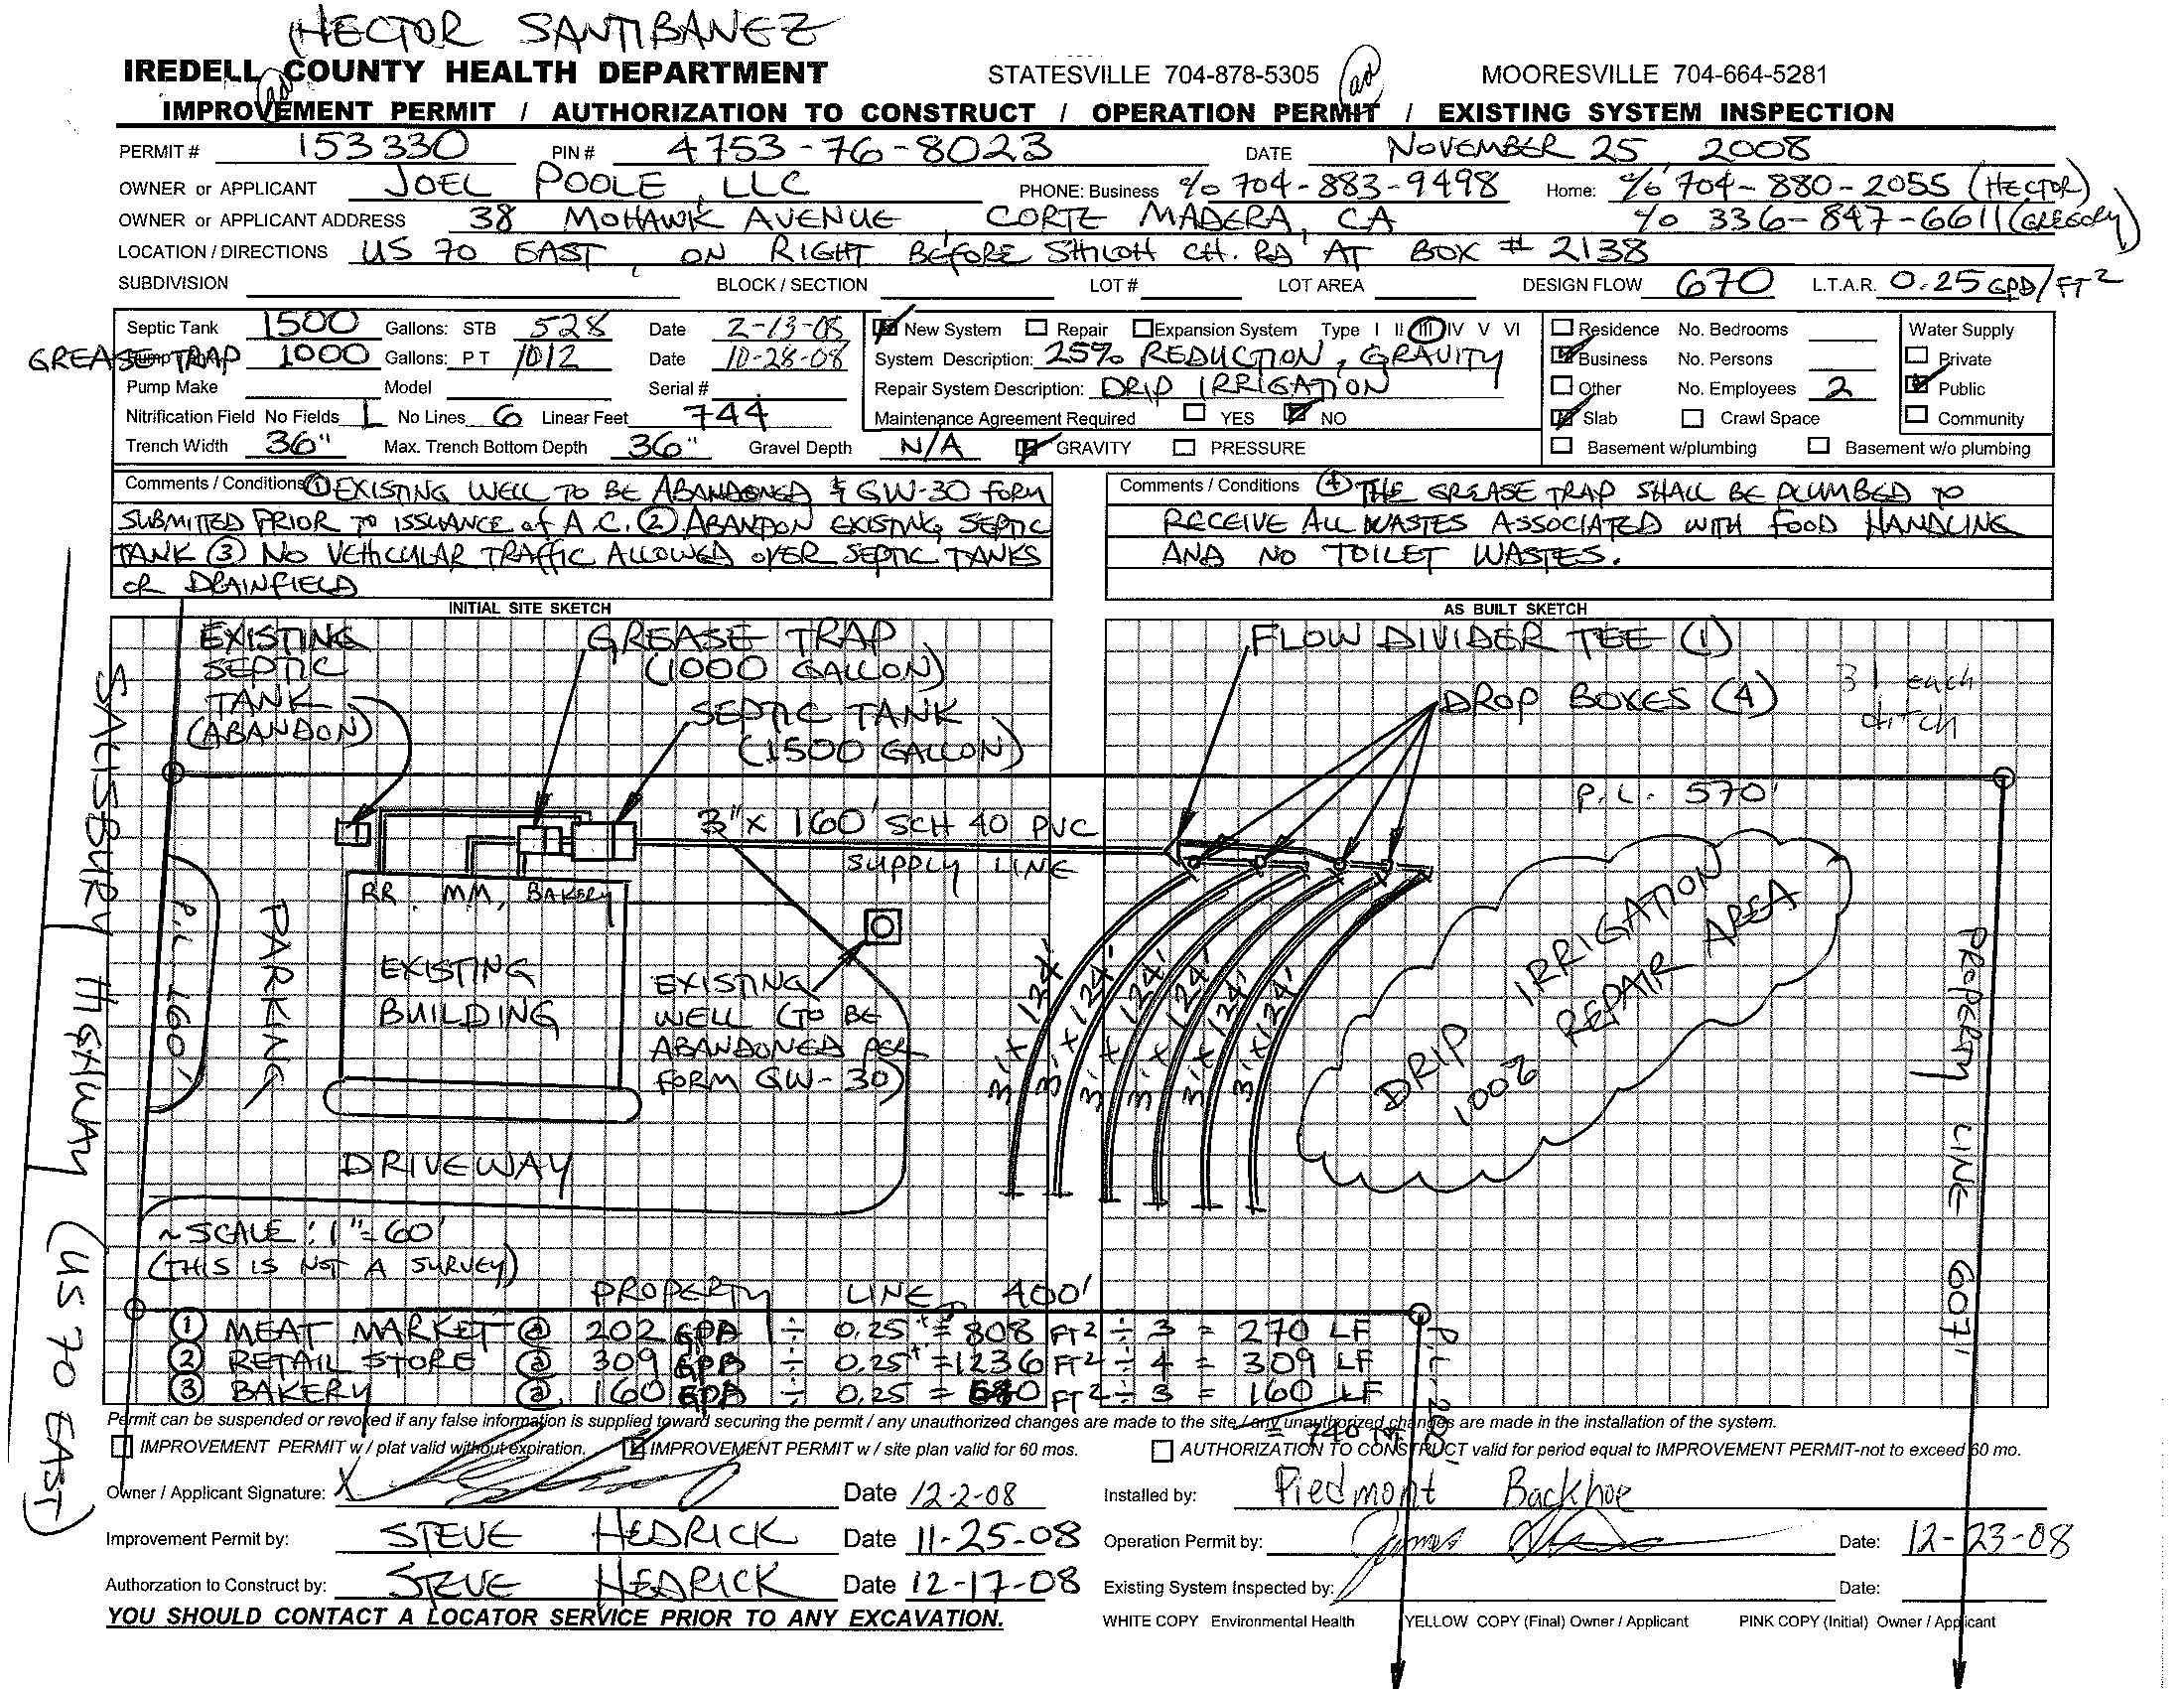 HECTOR SANTIBANEZ
IREDELL COUNTY HEALTH DEPARTMENT STATESVILLE 704-878-5305 MOORESVILLE 704-664-5281
IMPROVEMENT PERMIT / AUTHORIZATION TO CONSTRUCT / OPERATION PERMIT / EXISTING SYSTEM INSPECTION
PERMIT # 153330 PIN # 4753-76-8023 DATE NOVEMBER 25, 2008
OWNER or APPLICANT JOEL POOLE, LLC PHONE: Business % 704-883-9498 Home: % 704-880-2055 (HECTOR)
OWNER or APPLICANT ADDRESS 38 MOHAWK AVENUE, CORTE MADERA, CA % 336-847-6611 (GREGORY)
LOCATION / DIRECTIONS US 70 EAST, ON RIGHT BEFORE SHILOH CH. RD AT BOX # 2138
SUBDIVISION BLOCK / SECTION LOT # LOT AREA DESIGN FLOW 670 L.T.A.R. 0.25 GPD/FT2
Septic Tank 1500 Gallons: STB 528 Date 2-13-08 New System Repair Expansion System Type I II III IV V VI Residence No. Bedrooms Water Supply
GREASE TRAP 1000 Gallons: P T 1012 Date 10-28-08 System Description: 25% REDUCTION, GRAVITY Business No. Persons Private
Pump Make Model Serial # Repair System Description: DRIP IRRIGATION Other No. Employees 2 Public
Nitrification Field No Fields 1 No Lines 6 Linear Feet 744 Maintenance Agreement Required YES NO Slab Crawl Space Community
Trench Width 36" Max. Trench Bottom Depth 36" Gravel Depth N/A GRAVITY PRESSURE Basement w/plumbing Basement w/o plumbing
Comments / Conditions ① EXISTING WELL TO BE ABANDONED & GW-30 FORM
SUBMITTED PRIOR TO ISSUANCE of A.C. ② ABANDON EXISTING SEPTIC
TANK ③ NO VEHICULAR TRAFFIC ALLOWED OVER SEPTIC TANKS
OR DRAINFIELD
Comments / Conditions ④ THE GREASE TRAP SHALL BE PLUMBED TO
RECEIVE ALL WASTES ASSOCIATED WITH FOOD HANDLING
AND NO TOILET WASTES.
INITIAL SITE SKETCH AS BUILT SKETCH
EXISTING
SEPTIC
TANK
(ABANDON)
GREASE TRAP
(1000 GALLON)
SEPTIC TANK
(1500 GALLON)
FLOW DIVIDER TEE (1)
DROP BOXES (4)
31 each
ditch
P.L. 570'
3" x 160' SCH 40 PVC
SUPPLY LINE
RR. M.M. BAKERY
EXISTING
BUILDING
PARKING
P.L. 460'
SALISBURY HIGHWAY (US 70 EAST)
EXISTING
WELL (TO BE
ABANDONED PER
FORM GW-30)
3' x 124'
3' x 124'
3' x 124'
3' x 124'
3' x 124'
3' x 124'
DRIP IRRIGATION
100% REPAIR AREA
PROPERTY LINE 607'
DRIVEWAY
~SCALE: 1"=60'
(THIS IS NOT A SURVEY)
PROPERTY LINE 400'
① MEAT MARKET @ 202 GPD ÷ 0.25 = 808 FT2 ÷ 3 = 270 LF
② RETAIL STORE @ 309 GPD ÷ 0.25 = 1236 FT2 ÷ 4 = 309 LF
③ BAKERY @ 160 GPD ÷ 0.25 = 640 FT2 ÷ 3 = 160 LF
P.L. 200'
Permit can be suspended or revoked if any false information is supplied toward securing the permit / any unauthorized changes are made to the site / any unauthorized changes are made in the installation of the system.
IMPROVEMENT PERMIT w / plat valid without expiration. IMPROVEMENT PERMIT w / site plan valid for 60 mos. AUTHORIZATION TO CONSTRUCT valid for period equal to IMPROVEMENT PERMIT-not to exceed 60 mo.
Owner / Applicant Signature: X Date 12-2-08 Installed by: Piedmont Backhoe
Improvement Permit by: STEVE HEDRICK Date 11-25-08 Operation Permit by: James Date: 12-23-08
Authorzation to Construct by: STEVE HEDRICK Date 12-17-08 Existing System Inspected by: Date:
YOU SHOULD CONTACT A LOCATOR SERVICE PRIOR TO ANY EXCAVATION. WHITE COPY Environmental Health YELLOW COPY (Final) Owner / Applicant PINK COPY (Initial) Owner / Applicant